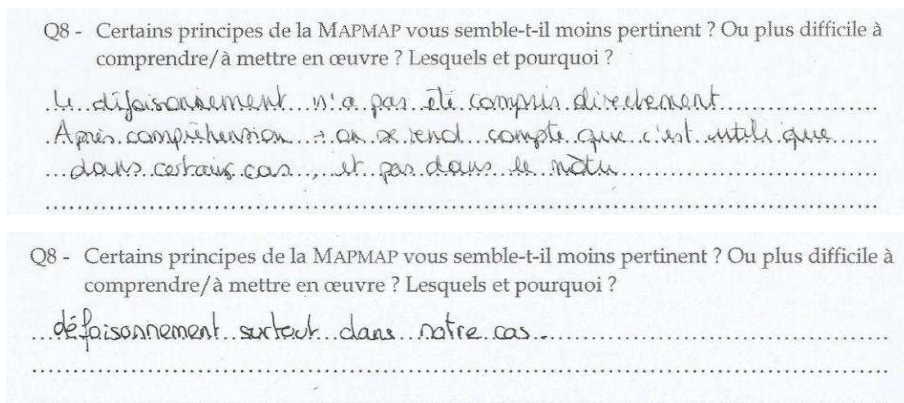 Q8 - Certains principes de la MAPMAP vous semble-t-il moins pertinent ? Ou plus difficile à
comprendre/à mettre en œuvre ? Lesquels et pourquoi ?
Le défoisonnement n'a pas été compris directement
Après compréhension → on se rend compte que c'est utile que
dans certains cas, et pas dans le nôtre
Q8 - Certains principes de la MAPMAP vous semble-t-il moins pertinent ? Ou plus difficile à
comprendre/à mettre en œuvre ? Lesquels et pourquoi ?
défoisonnement surtout dans notre cas.